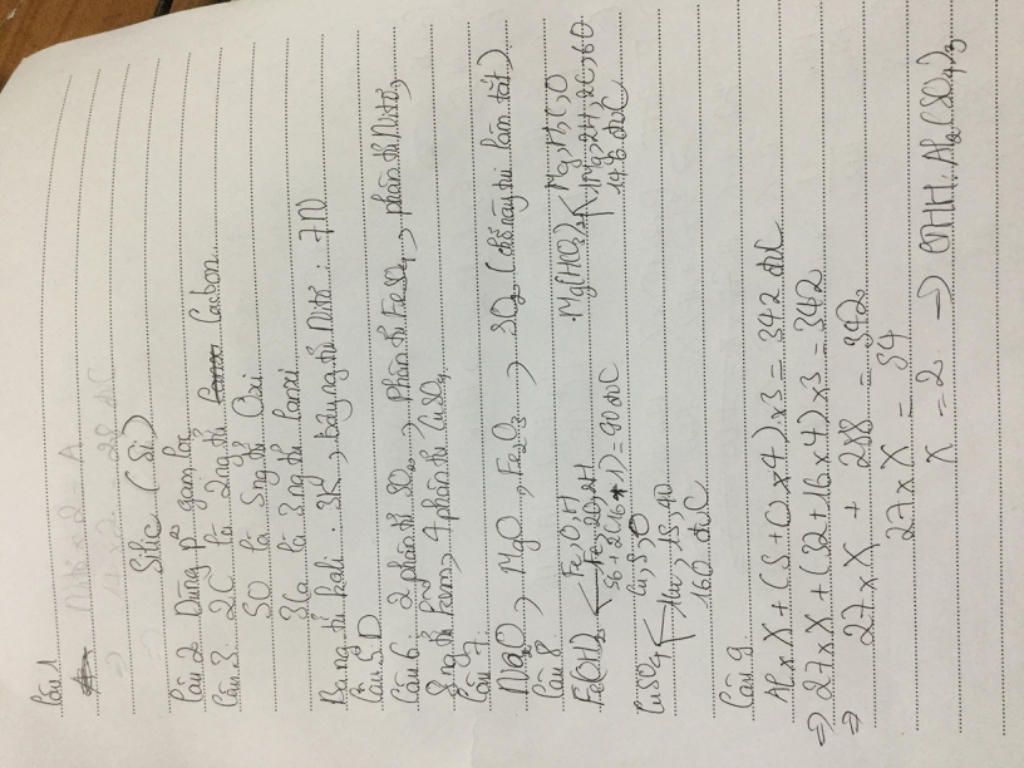 Câu 1
Nitơ x 2 = A
⇒ 14 x 2 = 28 đvC
Silic (Si)
Câu 2 Dùng p² gạn lọc
Câu 3. 2C là 2 ng tử Cacbon
5O là 5 ng tử Oxi
3Ca là 3 ng tử Canxi
Ba ng tử Kali : 3K, bảy ng tử Nitơ : 7N
Câu 5. D
Câu 6: 2 phân tử SO₂, Phân tử FeSO₄, phân tử Nitơ,
8 ng tử, 4 phân tử CuSO₄
Câu 7.
Na₂O, MgO, Fe₂O₃, SO₂ (chỗ này tui làm tắt)
Câu 8.
Fe(OH)₂ Fe, O, H
Fe, 2O, 2H
56 + 2(16 + 1) = 90 đvC
Mg(HCO₃)₂ Mg, H, C, O
1Mg, 2H, 2C, 6O
146 đvC
CuSO₄ Cu, S, O
1Cu, 1S, 4O
160 đvC
Câu 9
Al x X + (S + O x 4) x 3 = 342 đvC
⇒ 27 x X + (32 + 16 x 4) x 3 = 342
⇒ 27 x X + 288 = 342
27 x X = 54
X = 2 ⇒ CTHH: Al₂(SO₄)₃